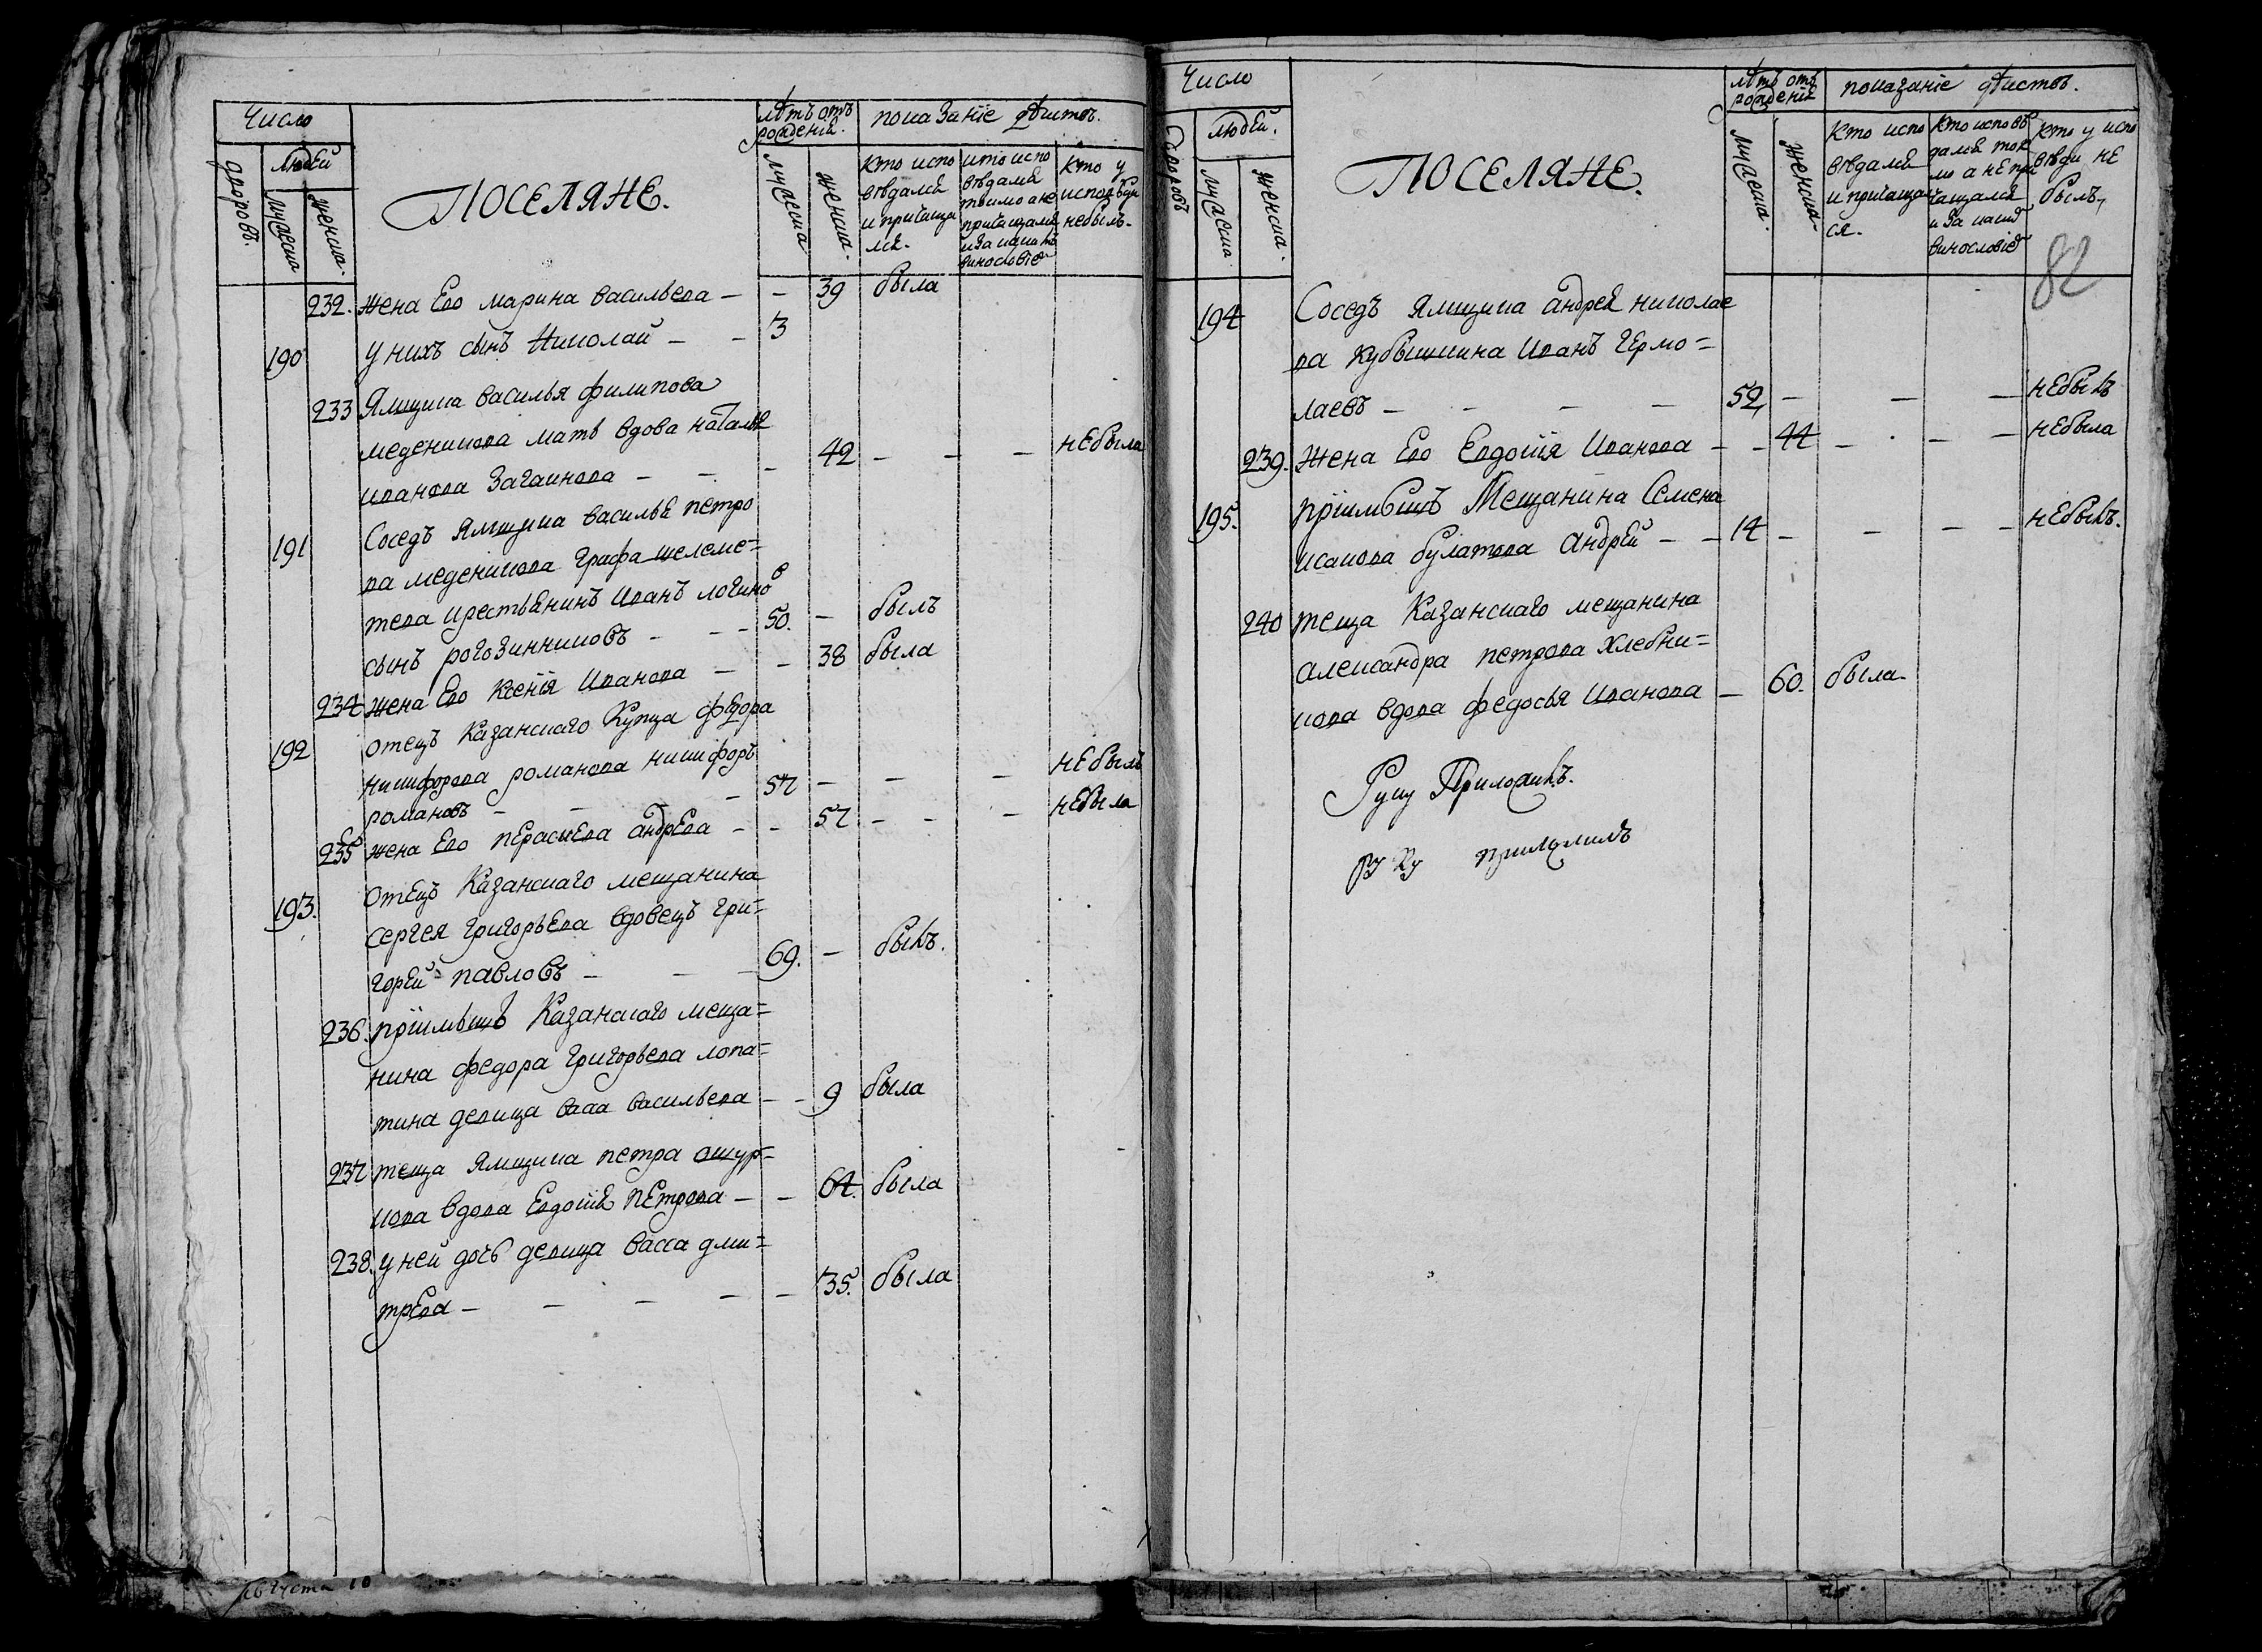 Число
лѣтъ отъ
рожденія.
показаніе дѣйствъ.
дворовъ.
людей
мужеска
женска.
ПОСЕЛЯНЕ.
мужеска
женска.
кто испо
вѣдался
и прича­ща
лся.
кто испо
вѣдался
токмо а не
причащался
и за какимъ
винословіе
кто у
исповѣди
небылъ.
232. жена Его марина васильева — — 39 была
190 у нихъ сынъ Николай — — 3
233 Ямщика василья филипова
меденикова мать вдова наталья
иванова Загаинова — — — 42 — — — небыла
191 Соседъ Ямщика василья петро
ва меденикова графа шелеме=
тева крестьянинъ Иванъ логиновъ
сынъ рогозинниковъ — — — 50. — былъ
234 жена Его Ксенія Иванова — — 38 была
192 отецъ Казанскаго Купца федора
никифорова романова никифоръ
романовъ — — — 57 — — — небылъ
235 жена Его Пераскева андреева — — 57 — — — небыла
193. отецъ Казанскаго мещанина
сергея григорьева вдовецъ гри=
горей павловъ — — — 69. — былъ.
236. пріимышъ Казанскаго меща=
нина федора григорьева лопа=
тина девица васа васильева — — 9 была
237 теща Ямщика петра ошур=
кова вдова Евдокія петрова — — 64. была
238. у ней дочь девица васса дми=
трева — — — — — 35. была
августа 10
Число
лѣтъ отъ
рожденія
показаніе дѣйствъ.
дворовъ
людей.
мужеска
женска.
ПОСЕЛЯНЕ.
мужеска.
женска.
кто испо
вѣдался
и причащал
ся.
кто исповѣ
дался ток
мо а не при
чащался
и за каким
винословіе
кто у испо
вѣди не
былъ,
82
194 Соседъ Ямщика андрея николае
ва кубышкина Иванъ Гермо=
лаевъ — — — — 52, — — — небылъ
239. жена Его Евдокія Иванова — — 44 — — — небыла
195. пріимышъ Мещанина Семена
исакова булатова андрей — — 14 — — — — небылъ.
240 теща Казанскаго мещанина
александра петрова хлебни=
кова вдова федосья Иванова — 60. была.
Руку Приложилъ.
Руку приложилъ